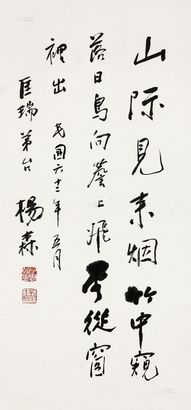 山際見來烟竹中窺
落日鳥向簷上飛雲從窗
裡出 民國六十二年五月
匡瑞弟台 楊森